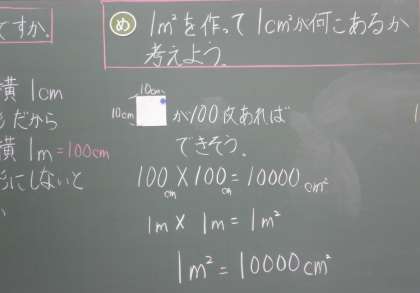 ですか.
横 1cm
だから
横 1m=100cm
にしないと
め 1m²を作って1cm²が何こあるか
考えよう.
10cm
10cm
が100枚あれば
できそう.
100cm×100cm=10000cm²
1m×1m=1m²
1m²=10000cm²